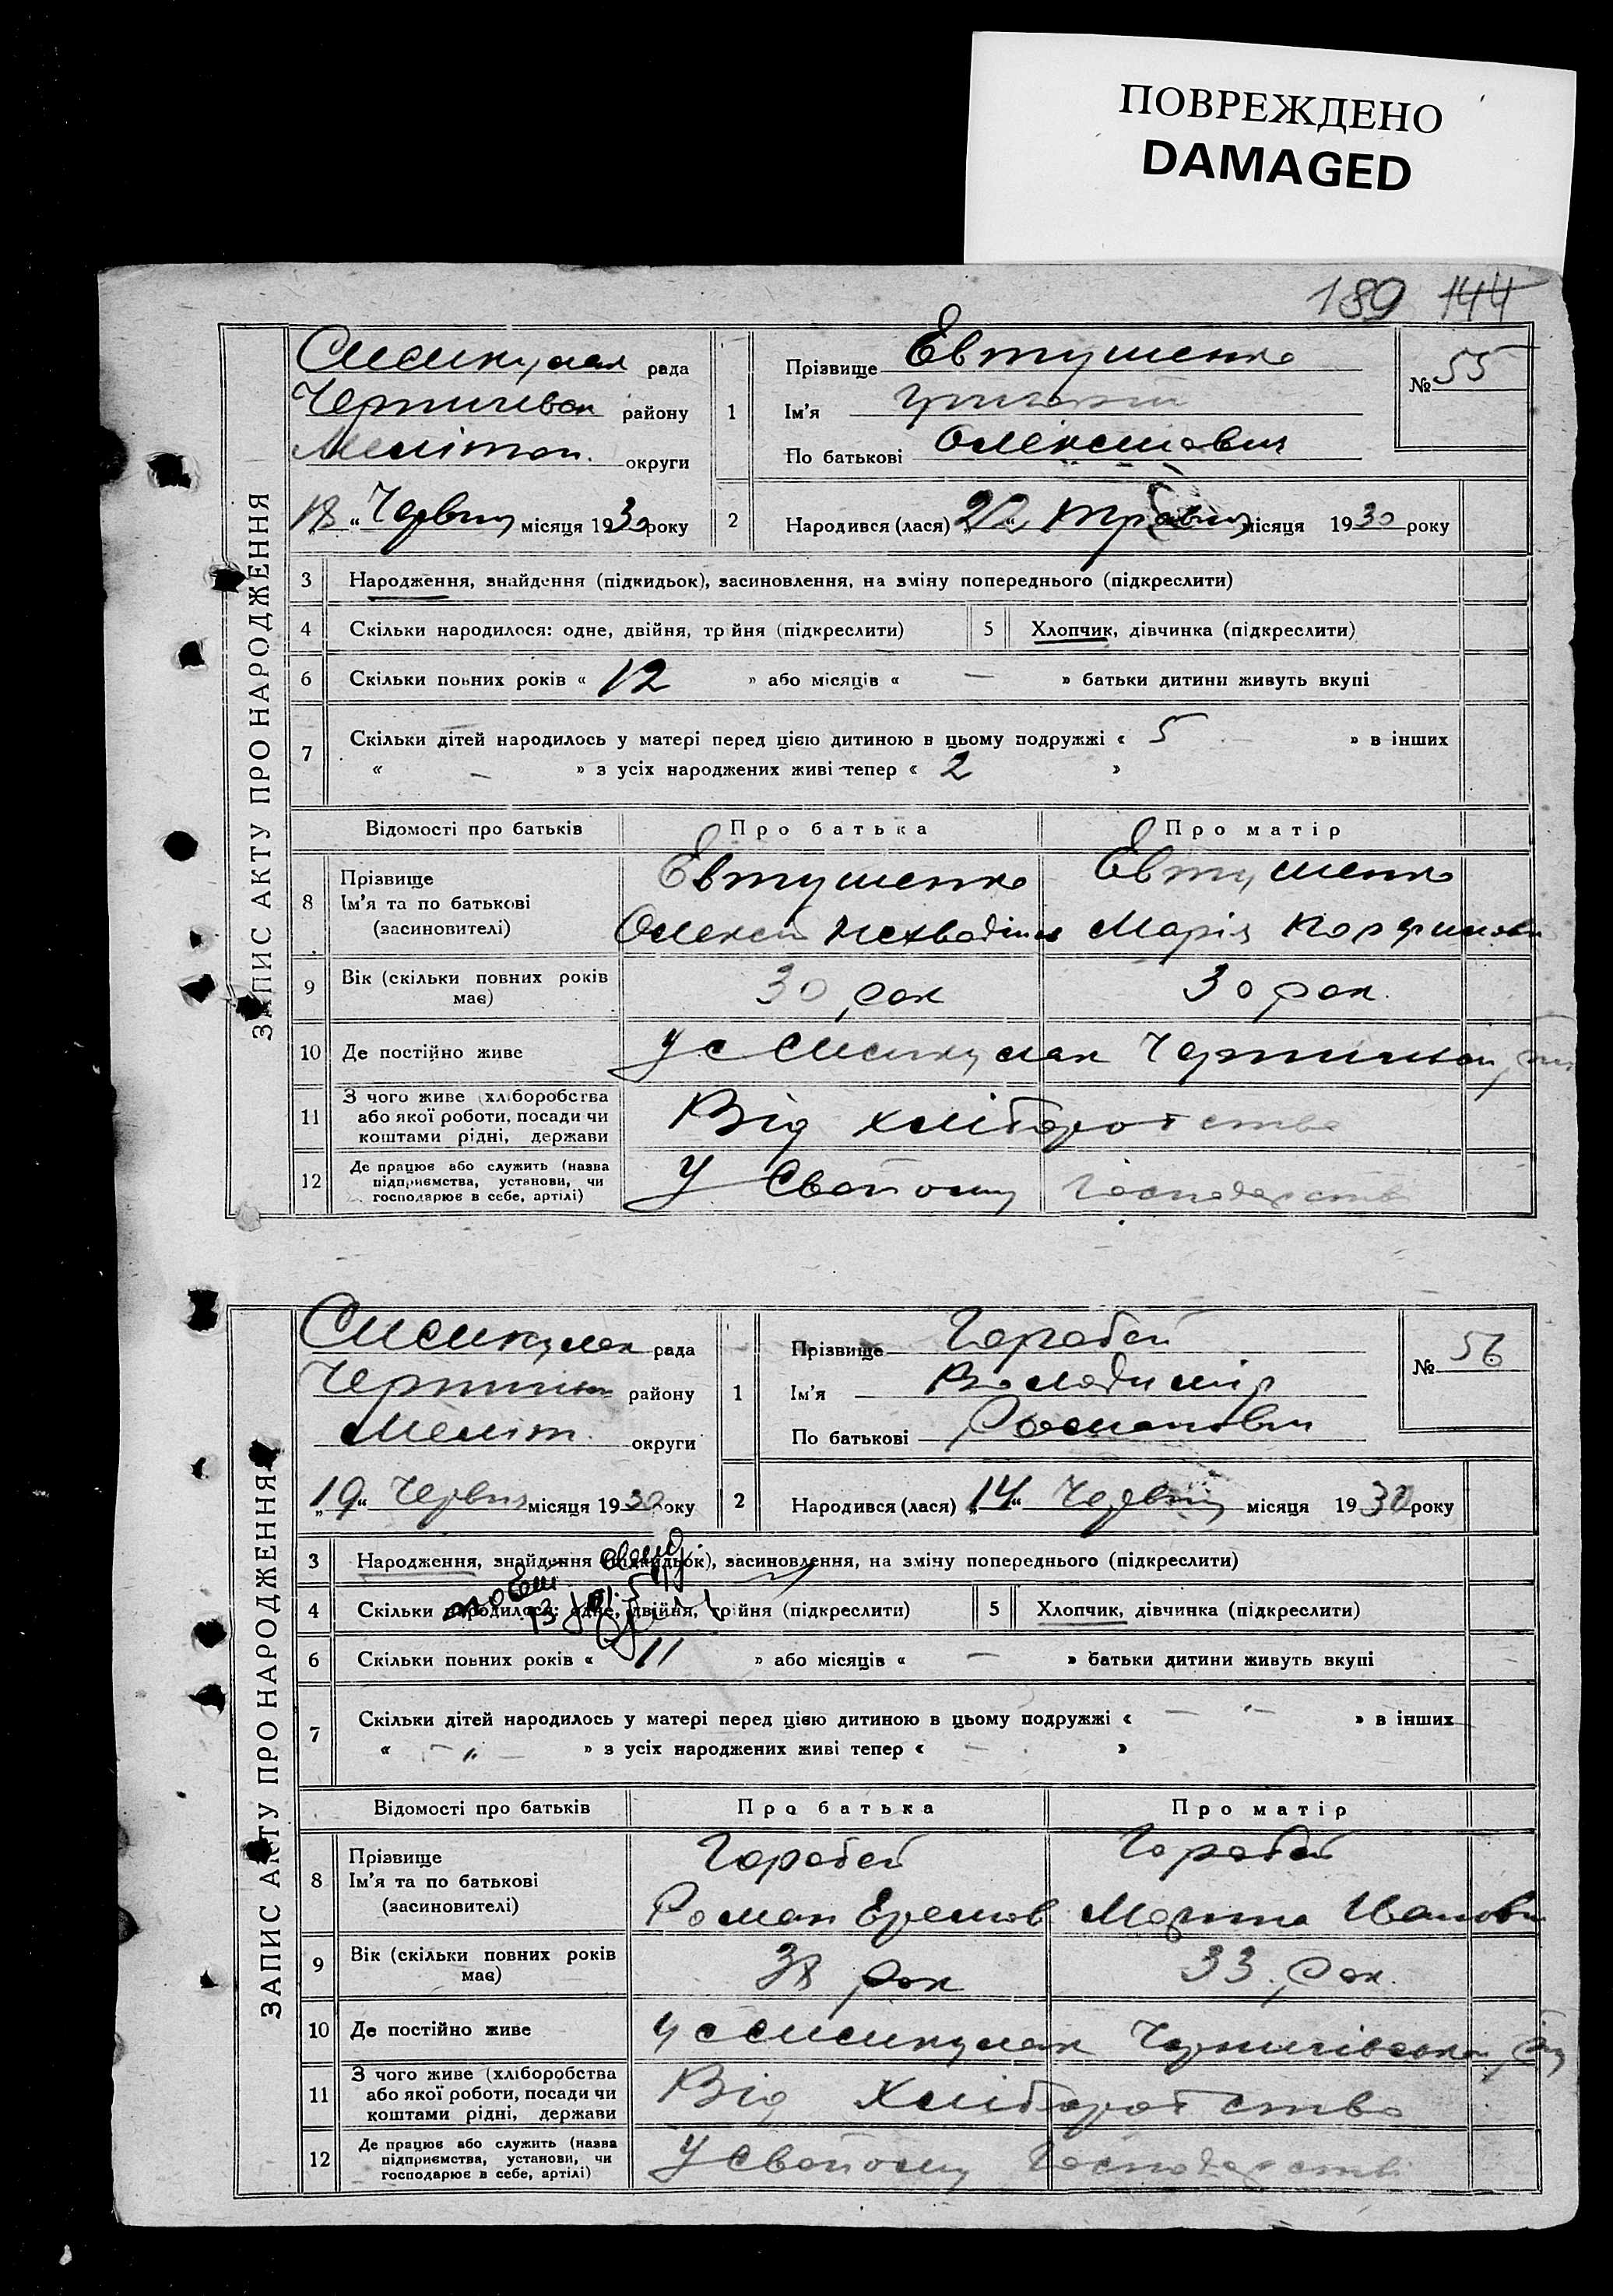 ПОВРЕЖДЕНО
DAMAGED
189 144
ЗАПИС АКТУ ПРО НАРОДЖЕННЯ
рада
району
Мелітоп. округи
18 „ Червня місяця 1930 року
1
Прізвище Евтушенко
Ім'я
По батькові Олексиевич
№ 55
2
Народився (лася) 22 „ травня місяця 1930 року
3 Народження, знайдення (підкидьок), засиновлення, на зміну попереднього (підкреслити)
4 Скільки народилося: одне, двійня, трійня (підкреслити)
5 Хлопчик, дівчинка (підкреслити)
6 Скільки повних років « 12 » або місяців « — » батьки дитини живуть вкупі
7 Скільки дітей народилось у матері перед цією дитиною в цьому подружжі « 5 — » в інших
« — » з усіх народжених живі тепер « 2 »
Відомості про батьків Про батька Про матір
8 Прізвище
Ім'я та по батькові
(засиновителі)
Евтушенко Евтушенко
Олексій Марія
9 Вік (скільки повних років
має)
30 рок 30 рок.
10 Де постійно живе
у с
11 З чого живе (хліборобства
або якої роботи, посади чи
коштами рідні, держави
Від хліборобства
12 Де працює або служить (назва
підприємства, установи, чи
господарює в себе, артілі)
У Своєму Господарстві
ЗАПИС АКТУ ПРО НАРОДЖЕННЯ
рада
району
Меліт. округи
„19 „ Червня місяця 1930 року
1
Прізвище Горобей
Ім'я Володимір
По батькові Романович
№ 56
2
Народився (лася) „14 „ Червня місяця 1930 року
3 Народження, знайдення (підкидьок), засиновлення, на зміну попереднього (підкреслити)
4 Скільки народилося: одне, двійня, трійня (підкреслити)
5 Хлопчик, дівчинка (підкреслити)
6 Скільки повних років « 11 » або місяців « — » батьки дитини живуть вкупі
7 Скільки дітей народилось у матері перед цією дитиною в цьому подружжі « — " — » в інших
« — " — » з усіх народжених живі тепер « — »
Відомості про батьків Про батька Про матір
8 Прізвище
Ім'я та по батькові
(засиновителі)
Горобей Горобей
Роман Еремов Іванов
9 Вік (скільки повних років
має)
38 рок 33. рок.
10 Де постійно живе
у с
11 З чого живе (хліборобства
або якої роботи, посади чи
коштами рідні, держави
Від Хліборобства
12 Де працює або служить (назва
підприємства, установи, чи
господарює в себе, артілі)
У Своєму Господарстві